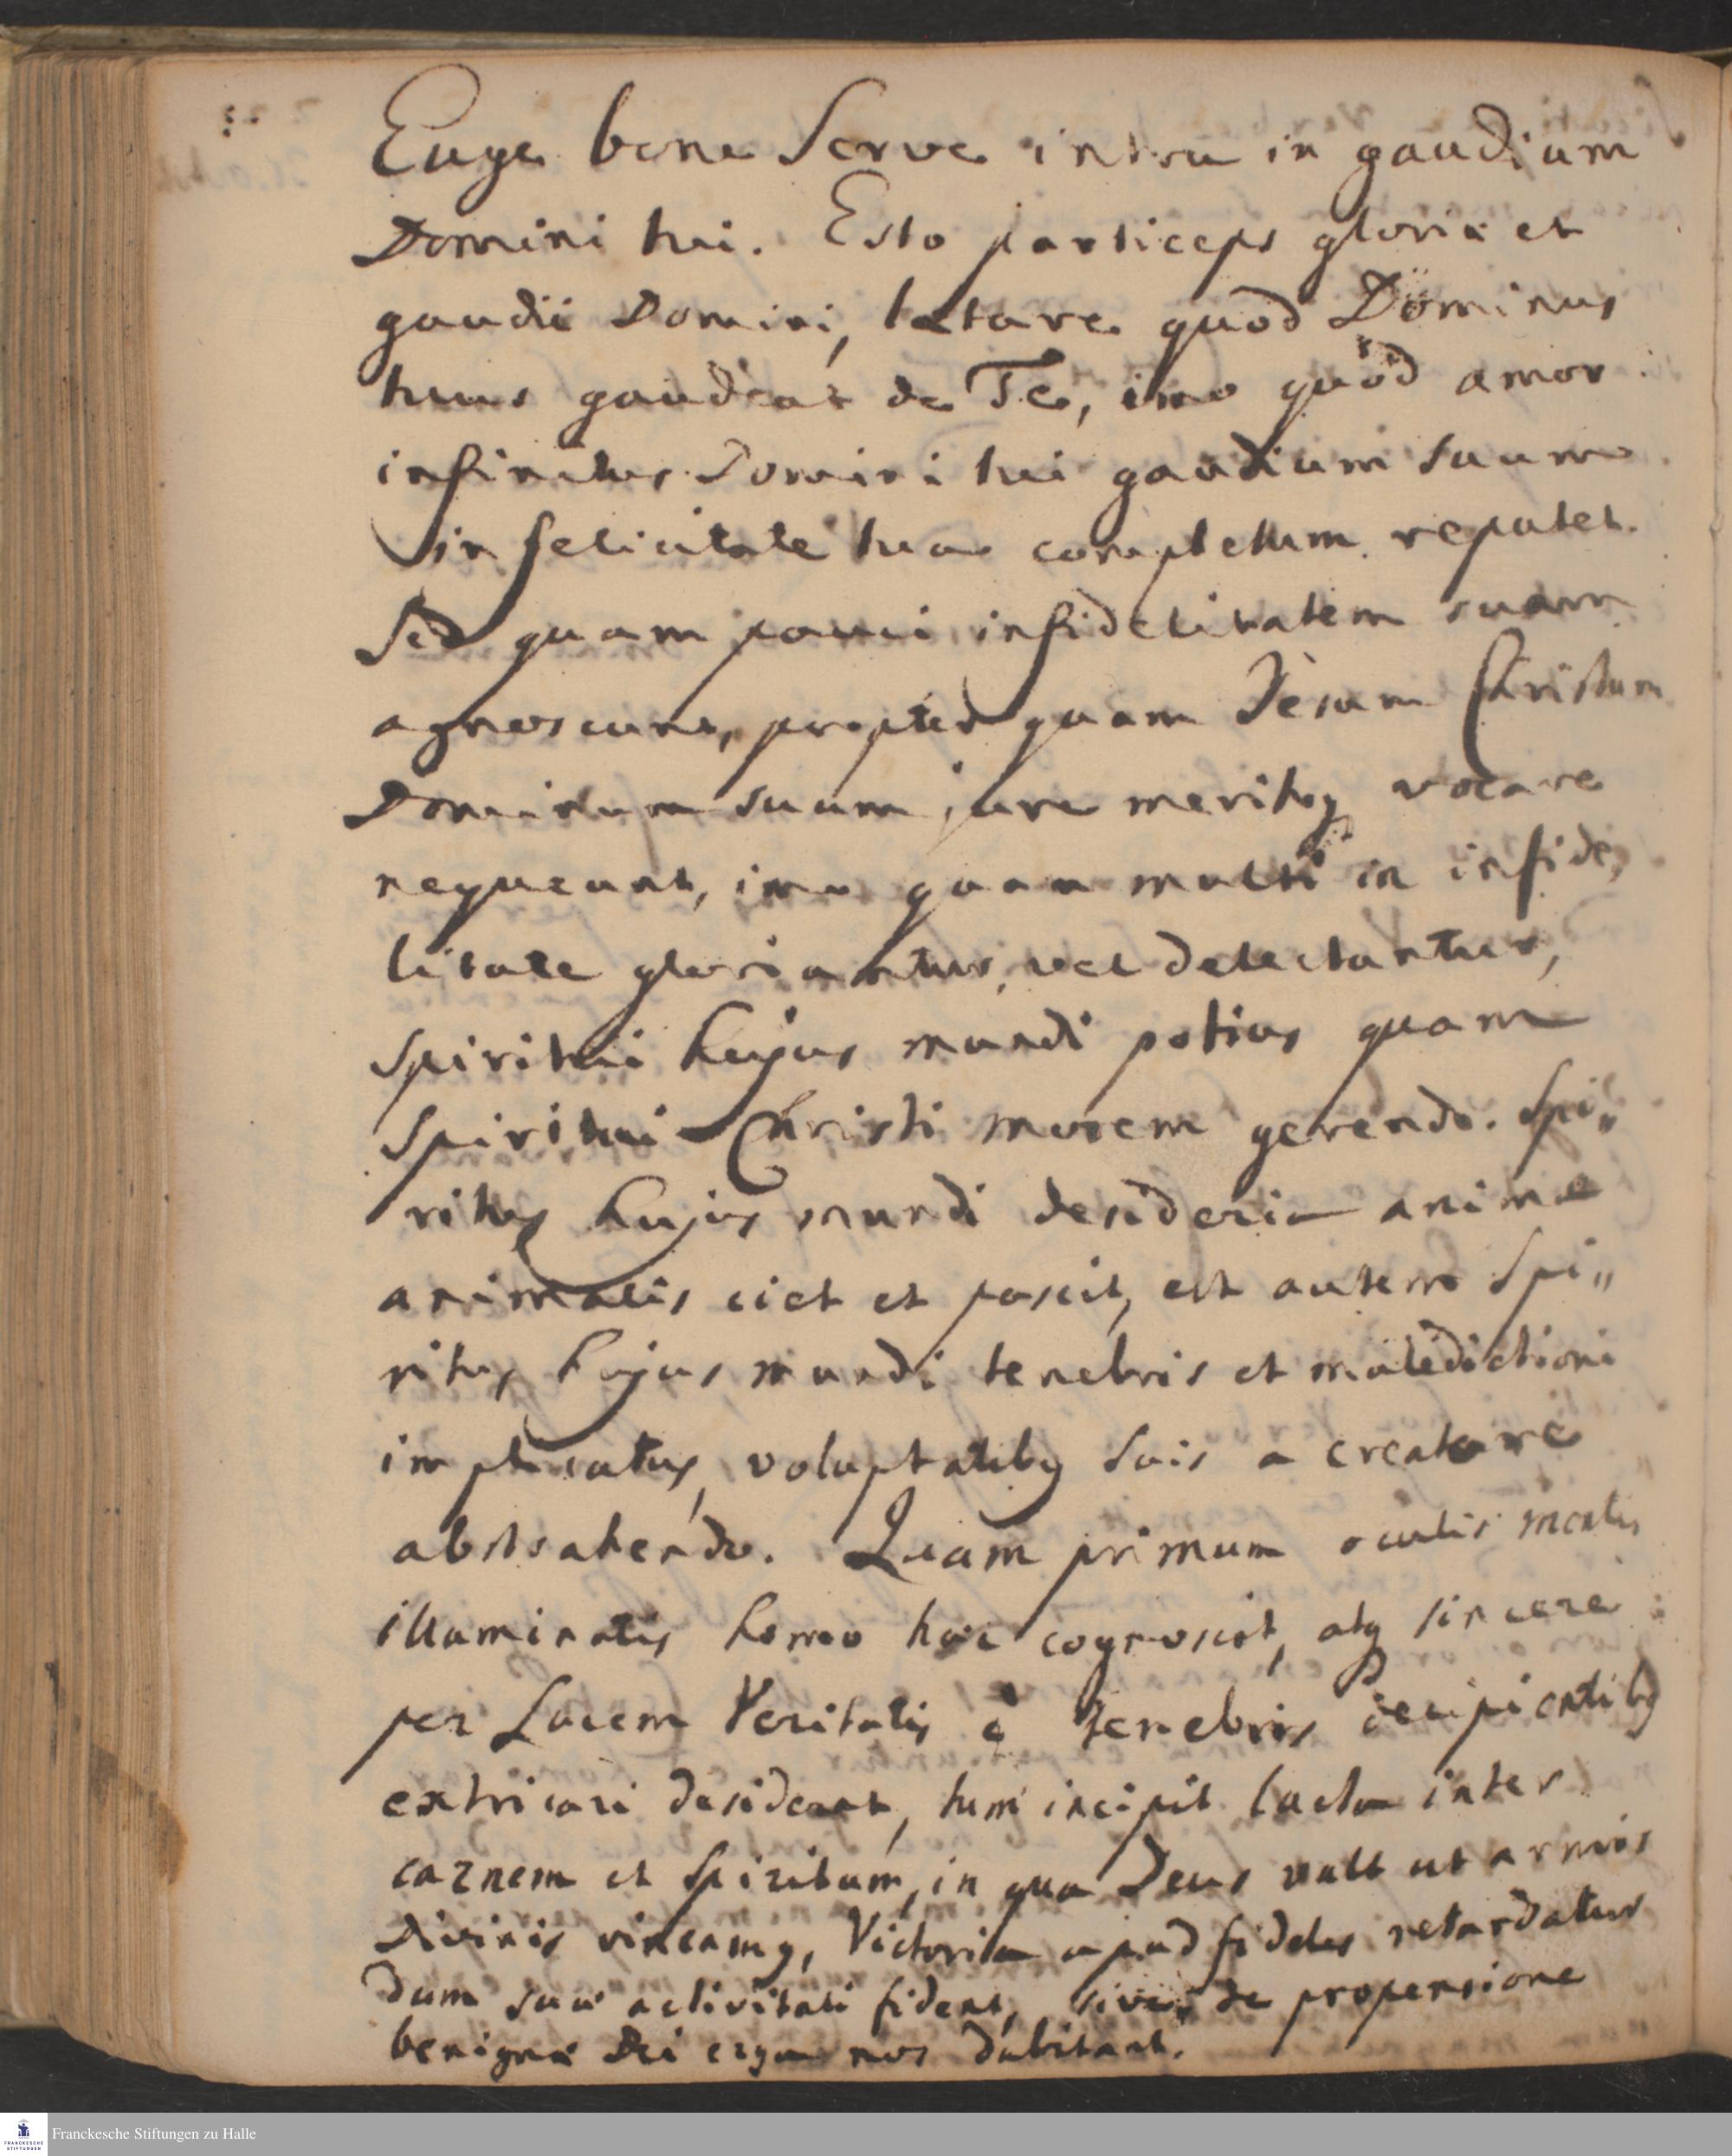 Euge bone Serve intra in gaudium
Domini tui. Esto particeps gloriæ et
gaudii Domini, lætare quod Dominus
tuus gaudeat de Te, imo quod amor
infinitus Domini tui gaudium suum
in felicitate tua completum reputet.
Sed quam pauci infidelitatem suam
agnoscunt, propter quam Jesum Christum
Dominum suum jure meritoq vocare
nequeunt, imo quam multi in infide„
litate gloriantur, vel delectantur,
Spiritui hujus mundi potius quam
Spiritui Christi morem gerendo. Spi„
ritus hujus mundi desideria animæ
animalis ciet et pascit, est autem Spi„
ritus hujus mundi tenebris et maledictioni
implicatus, voluptatibq suis a creatore
abstrahendo. Quam primum oculis mentis
illuminatis homo hæc cognoscit, atq sincere
per Lucem Veritatis è tenebris decipientibq
extricari desiderat, tum incipit lucta inter
carnem et Spiritum, in qua Deus vult ut armis
Divinis vincamq, Victoria apud fideles retardatur
dum suæ activitati fident, sive de propensione
benigna Dei erga nos dubitant.
Franckesche Stiftungen zu Halle
FRANCKESCHE
STIFTUNGEN